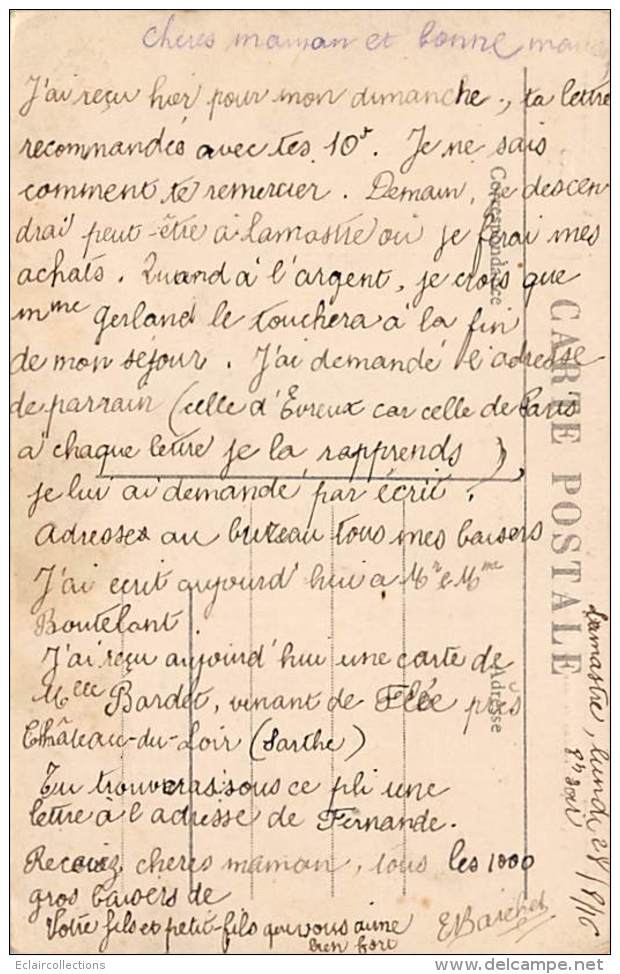 cheres maman et bonne maman
J'ai reçu hier pour mon dimanche, ta lettre
recommandés avec tes 10f. Je ne sais
comment te remercier. Demain, je descen
drai peut-être à Lamastre où je ferai mes
achats. Quand à l'argent, je crois que
Mme Gerland le touchera à la fin
de mon séjour. J'ai demandé l'adresse
de parrain (celle d'Evreux car celle de Paris
à chaque lettre je la rapprends),
je lui ai demandé par écrit.
Adresses au bureau tous mes baisers
J'ai ecrit aujourd'hui a Mr e Mme
Boutelant.
J'ai reçu aujourd'hui une carte de
Melle Bardet, venant de Flée près
Château-du-Loir (Sarthe)
Tu trouveras sous ce pli une
lettre à l'adresse de Fernande.
Recevez, cheres maman, tous les 1000
gros baisers de
Votre fils et petit-fils qui vous aime
bien fort
CARTE POSTALE
Correspondance
Adresse
Lamastre, lundi 28/8/16
8h soir
Eclaircollections
www.delcampe.net